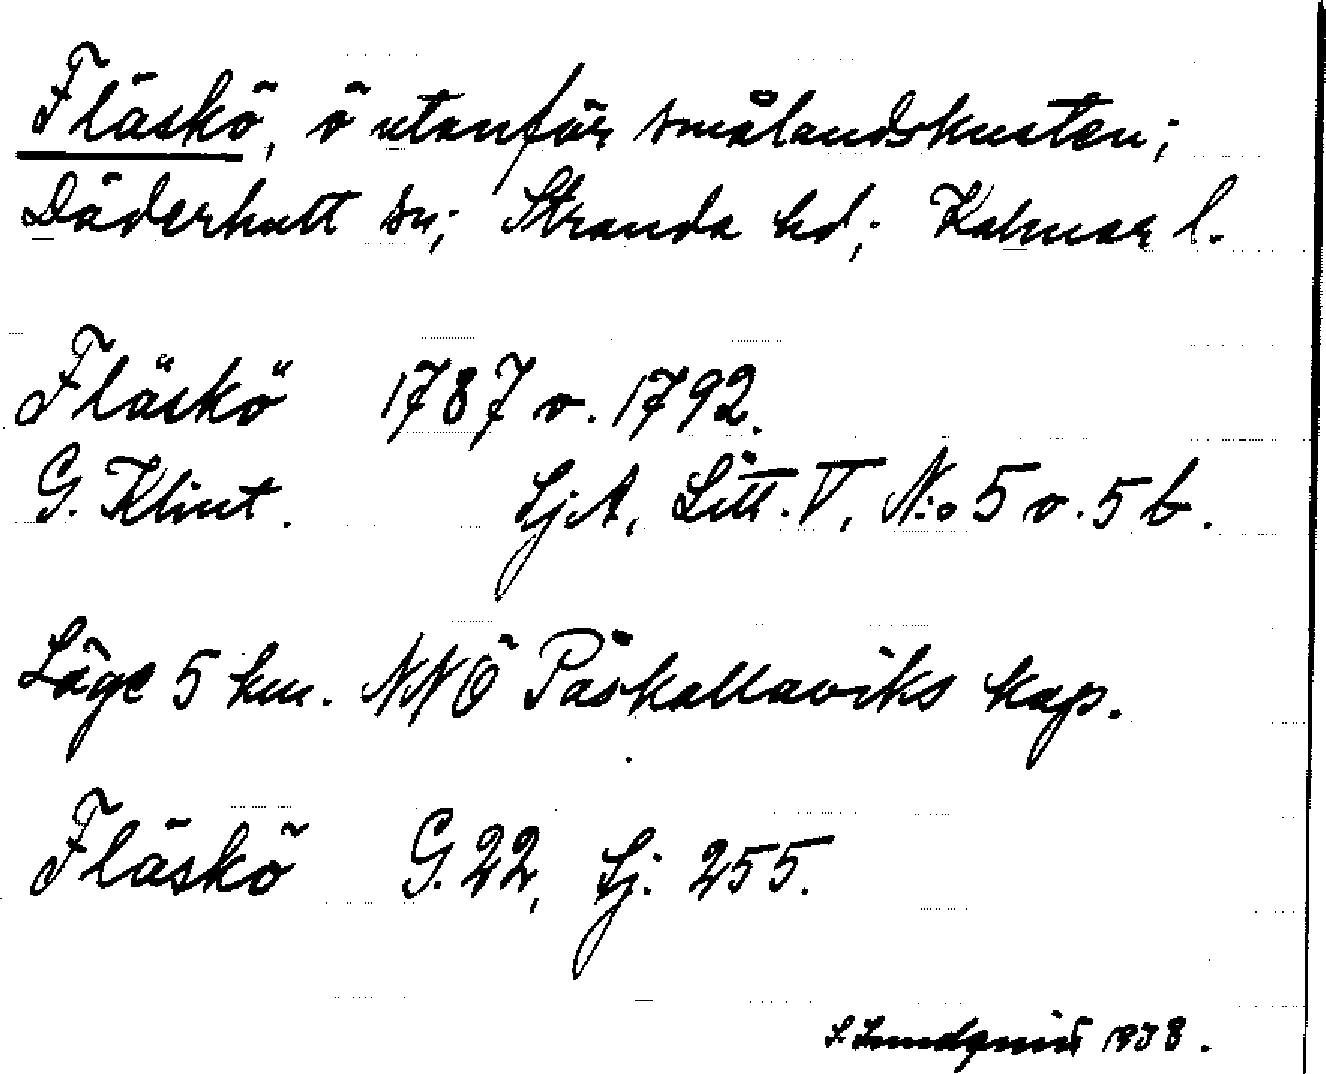 Fläskö, ö utanför smålandskusten;
Döderhult sn; Stranda hd; Kalmar l.
Fläskö 1787 o. 1792.
G. Klint. Sj.A, Litt. V, N:o 5 o. 5 b.
Läge 5 km. NNÖ Påskallaviks kap.
Fläskö G. 22, Sj. 255.
S. Lundquist 1938.